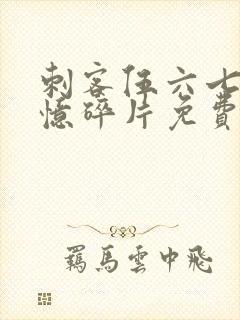 刺客伍六七
憶碎片免費
羈馬雲中飛